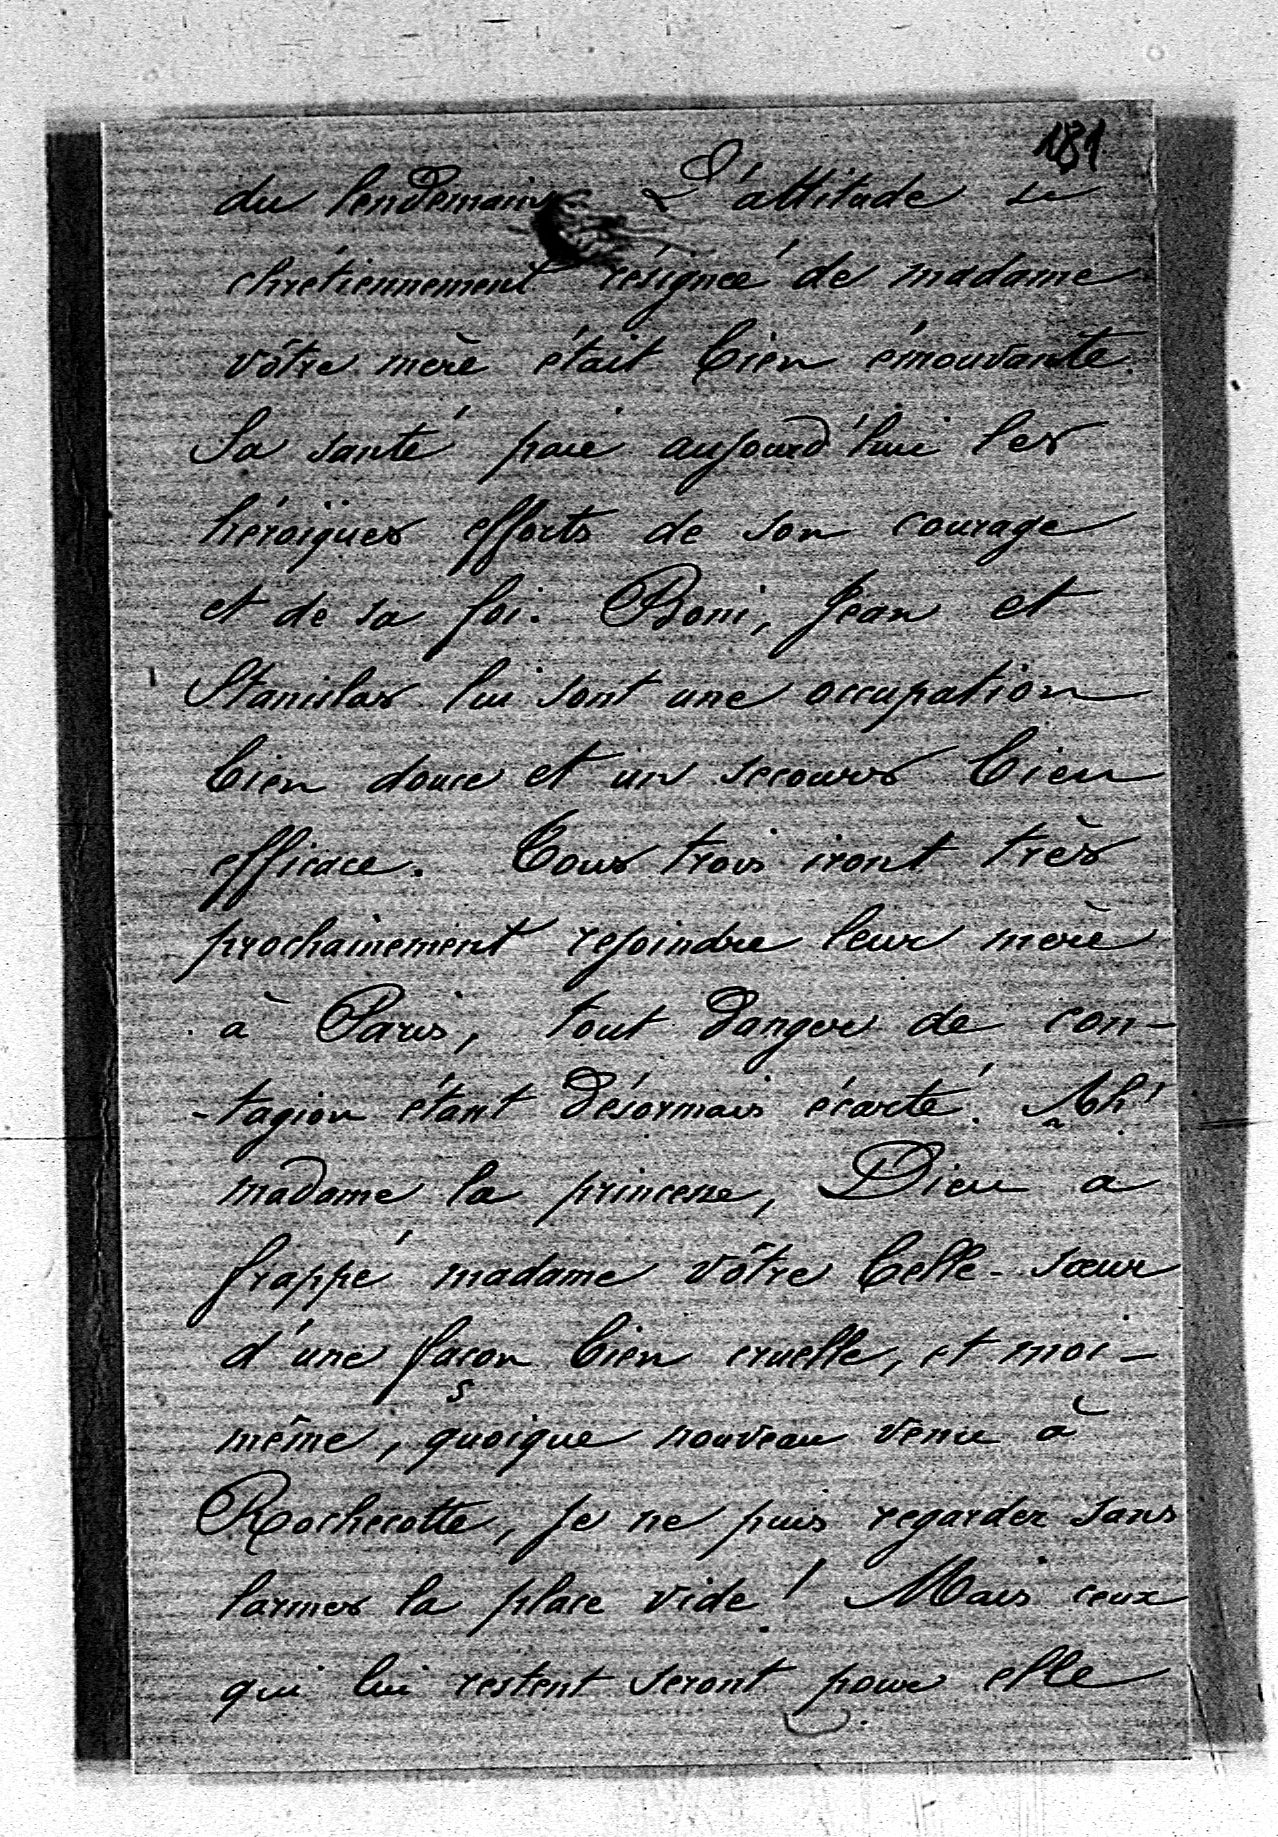 181
du lendemain L'attitude si
chrétiennement résignée de madame
vôtre mère était bien émouvante.
Sa santé paie aujourd'hui les
héroïques efforts de son courage
et de sa foi. Boni, Jean et
Stanislas lui sont une occupation
bien douce et un secours bien
efficace. Tous trois iront très
prochainement rejoindre leur mère
à Paris, tout danger de con-
-tagion étant désormais écarté. Ah!
madame la princesse, Dieu a
frappé madame vôtre belle-sœur
d'une façon bien cruelle, et moi-
même, quoique nouveau venu à
Rochecotte, je ne puis regarder sans
larmes la place vide! Mais ceux
qui lui restent seront pour elle